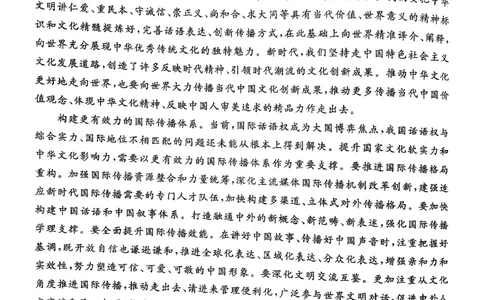 文明讲仁爱、重民本、守诚信、崇正义、尚和合、求大同等具有当代价值、世界意义的精神标
识和文化精髓提炼好,完善话语表达、创新传播方式,在此基础上向世界精准译介、阐释,
向世界充分展现中华优秀传统文化的独特魅力。新时代,我们坚持走中国特色社会主义
文化发展道路,创造了许多反映时代精神、引领时代潮流的文化创新成果。推动中华文化
更好地走向世界,也要向世界大力传播当代中国文化创新成果,推动更多传播当代中国价
值观念、体现中华文化精神、反映中国人审美追求的精品力作走出去。
构建更有效力的国际传播体系。当前,国际话语权成为大国博弈焦点,我国话语权与
综合实力、国际地位不相匹配的问题还未能从根本上得到解决。提升国家文化软实力和
中华文化影响力,需要以更有效力的国际传播体系作为重要支撑。要推进国际传播格局
重构。加强国际传播资源整合和力量统筹,深化主流媒体国际传播机制改革创新,建强适
应新时代国际传播需要的专门人才队伍,加快构建多渠道、立体式对外传播格局。要加快
构建中国话语和中国叙事体系。打造融通中外的新概念、新范畴、新表述,强化国际传播
学理支撑。要全面提升国际传播效能。在讲好中国故事、传播好中国声音时,注重把握好
基调,既开放自信也谦逊谦和,推进全球化表达、区域化表达、分众化表达,增强亲和力和
实效性,努力塑造可信、可爱、可敬的中国形象。要深化文明交流互鉴。更加注重从文化
角度推进国际传播,推动走出去、请进来管理便利化,广泛参与世界文明对话,促进中外人